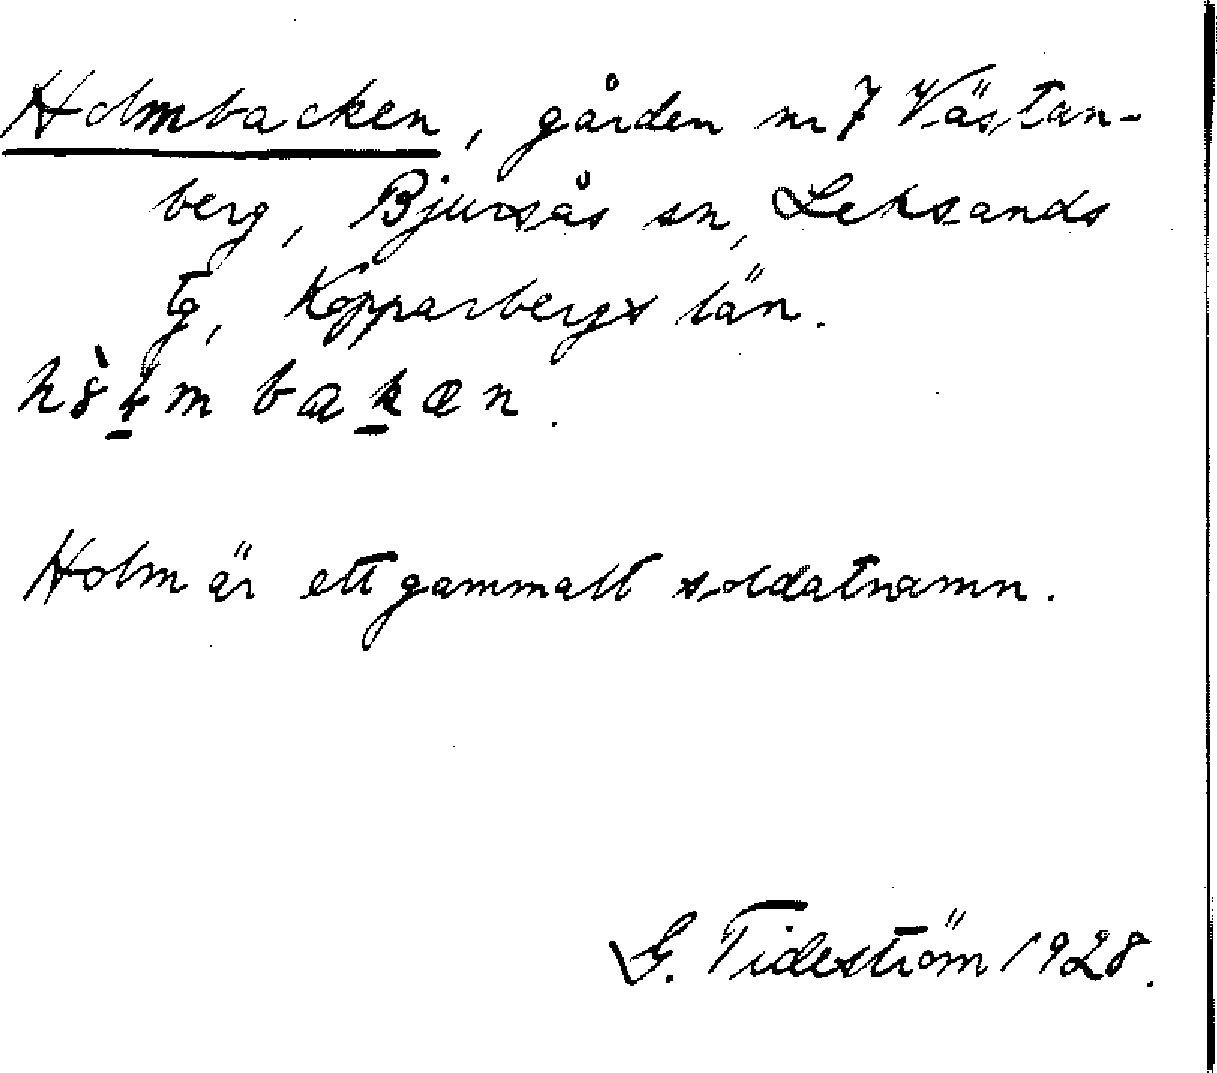 Holmbacken, gården nr 7 Västan-
berg, Bjursås sn, Leksands
tg, Kopparbergs län.
Holm är ett gammalt soldatnamn.
G. Tideström 1928.